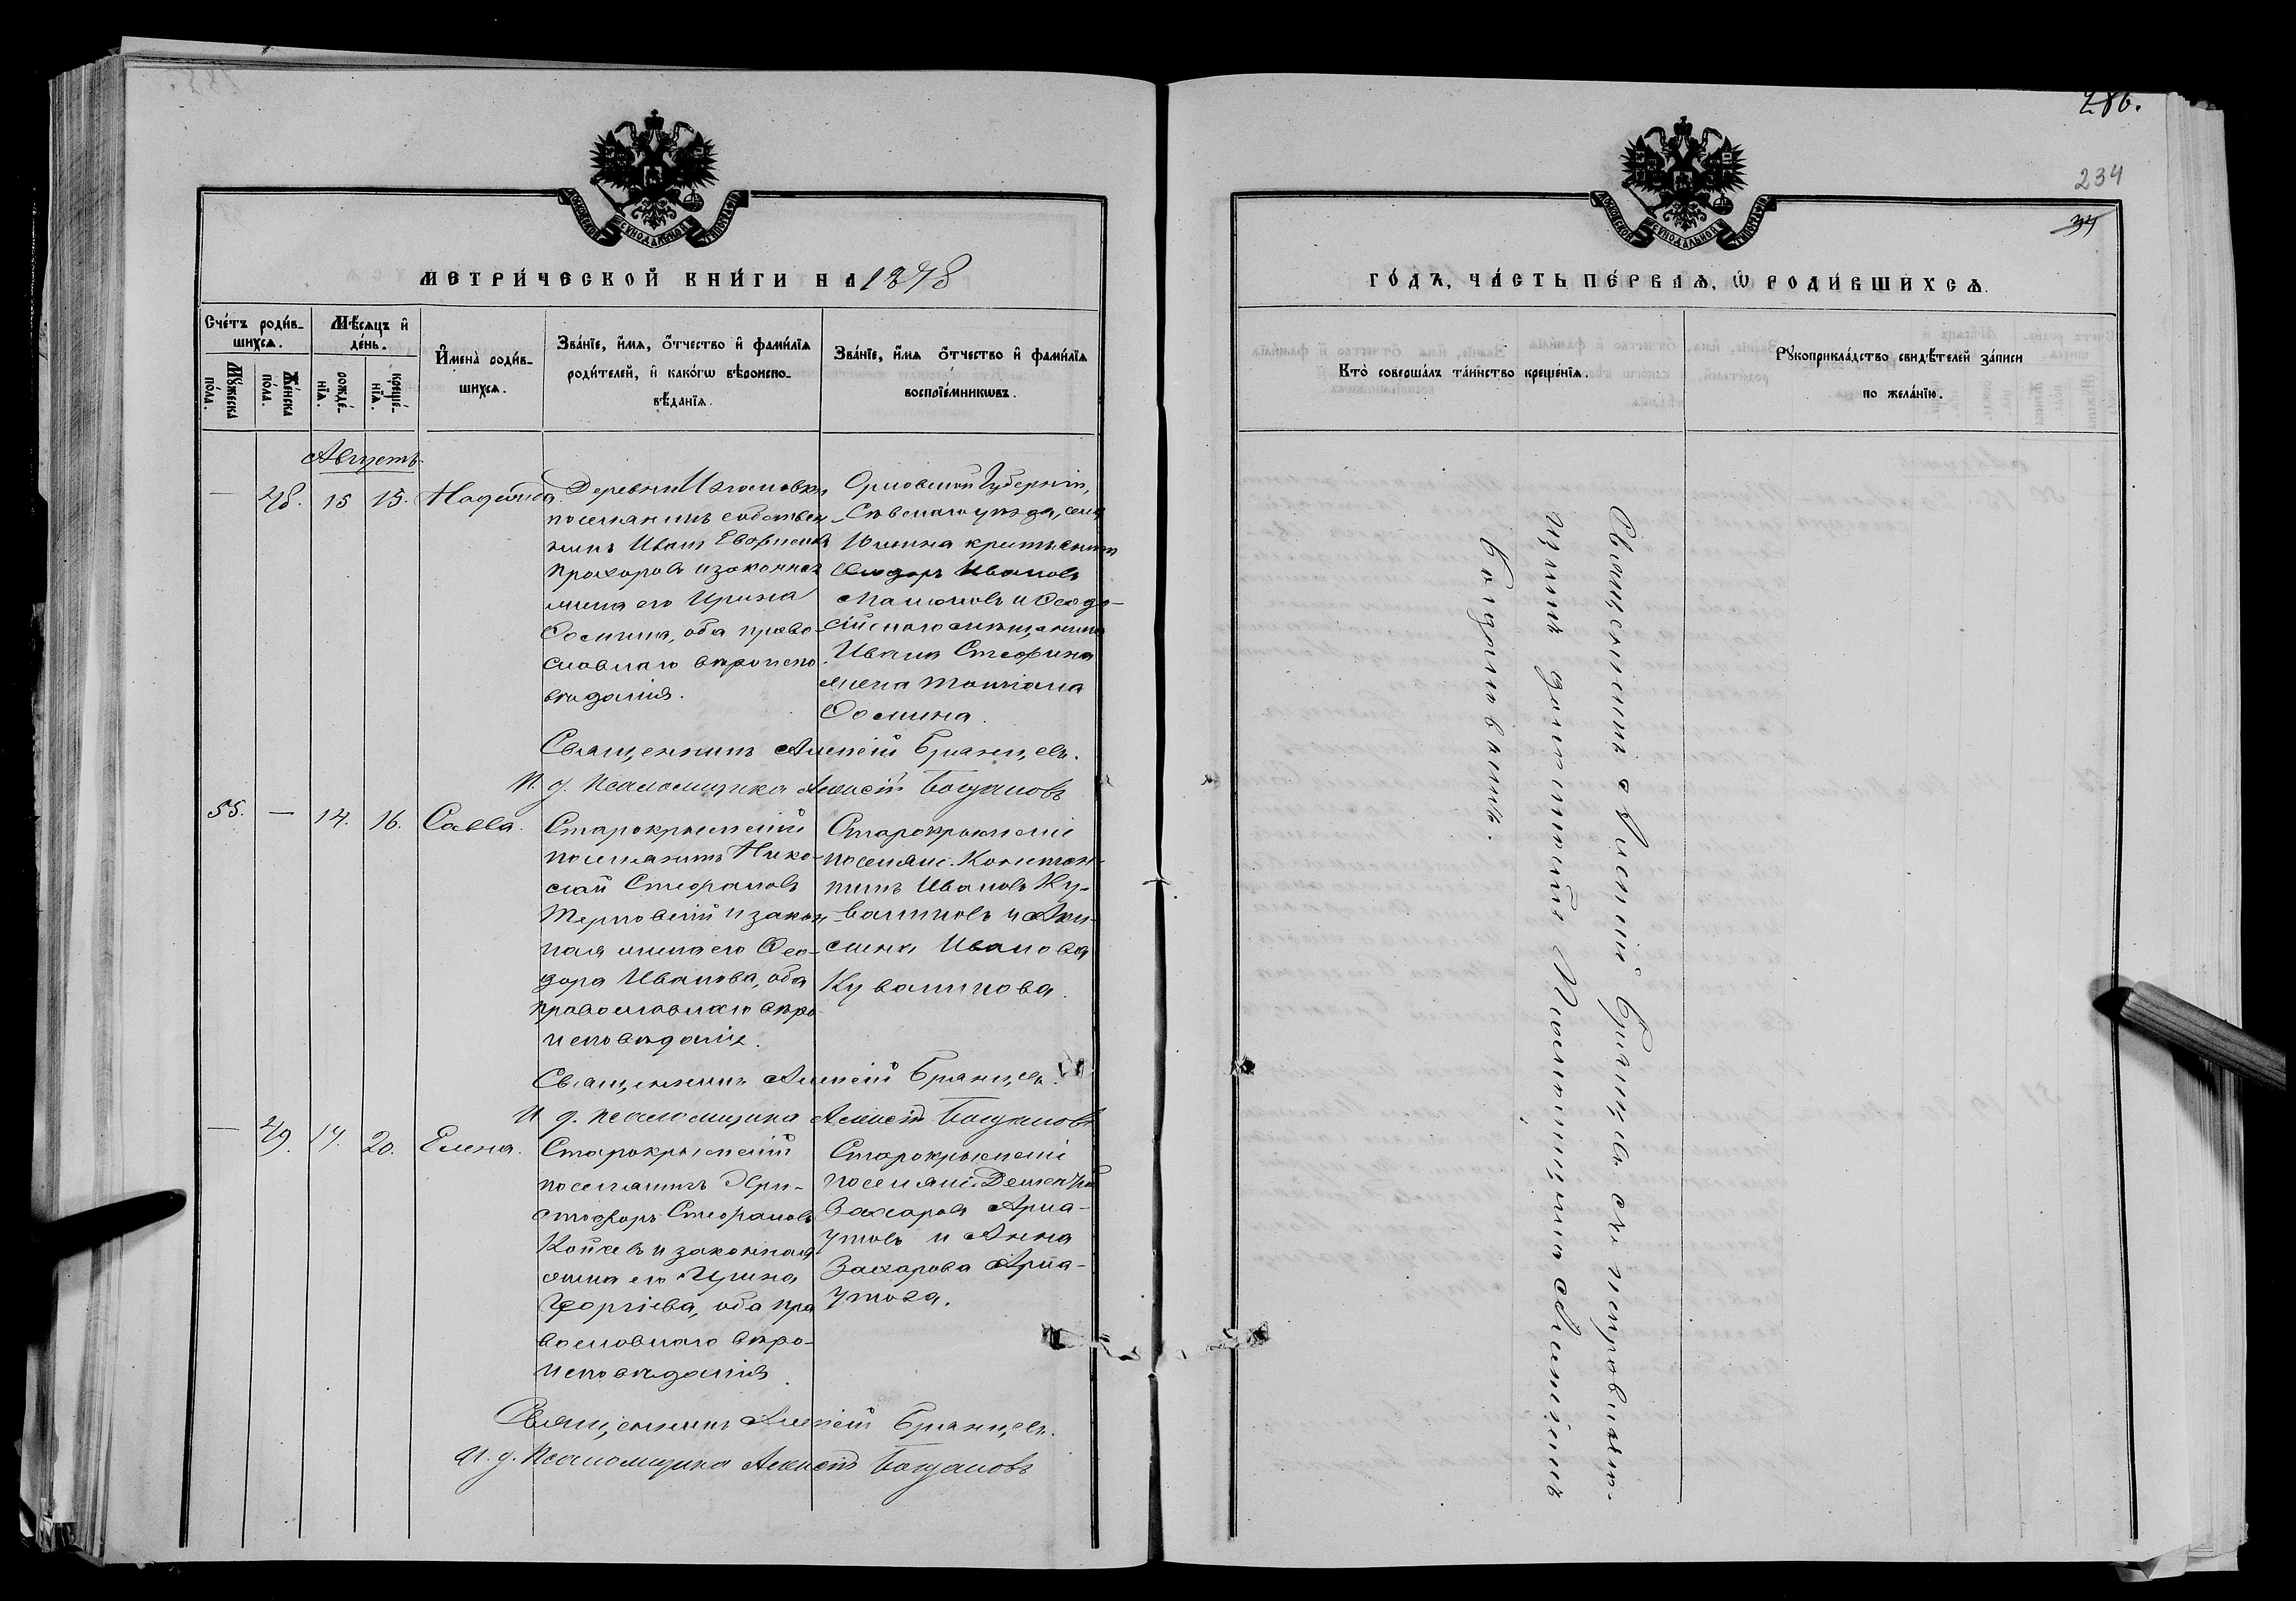 286.
234
34
МОСКОВСКОЙ СѴНОДАЛЬНОЙ ТИПОГРАФІИ
МЕТРИ́ЧЕСКОЙ КНИ́ГИ НА 1878
Сче́тъ роди́в-
шихся.
Мꙋ́жеска
по́ла.
Же́нска
по́ла.
Мѣ́сяцъ и҆
де́нь.
рожде́-
нїѧ.
креще́-
нїѧ.
И҆мена̀ роди́в-
шихсѧ.
Зва́нїе, и҆́мѧ, ѻ҆́тчество и҆ фами́лїѧ
роди́телей, и҆ како́гѡ вѣроиспо-
вѣ́данїѧ.
Зва́нїе, и҆́мѧ ѻ҆́тчество и҆ фами́лїѧ
воспрїе́мникѡвъ.
Августъ
— 48. 15 15. Надежда.
Деревни Изюмовки
поселянинъ собствен
никъ Иванъ
Прохоровъ и законная
жена его Ирина
Фомина, оба право-
славнаго вѣроиспо
вѣданія.
Орловской Губерніи,
Сѣвскаго уѣзда, села
крестьянинъ
Ивановъ
и Ѳеодо-
сійскаго мѣщанина
Ивана Стефана
жена Татіана
Фомина.
Священникъ Алексій Брянцевъ.
И. д. Псаломщика Алексій Богдановъ
55. — 14. 16. Савва.
Старокрымскій
поселянинъ Нико-
лай Стефановъ
Терновскій и закон
ная жена его Ѳео-
дора Иванова, оба
православнаго вѣро
исповѣданія.
Старокрымскіе
поселяне. Констан-
тинъ Ивановъ Ку-
валиновъ и Аки-
лина Иванова
Кувалинова.
Священникъ Алексій Брянцевъ.
И д. псаломщика Алексій Богдановъ
— 49. 17. 20. Елена.
Старокрымскій
поселянинъ Хри-
стофоръ Стефановъ
Койчевъ и законная
жена его Ирина
Георгіева, оба пра
вославнаго вѣро-
исповѣданія.
Старокрымскіе
поселяне. Дмитрій
Захаровъ Арна-
утовъ и Анна
Захарова Арна-
утова.
Священникъ Алексій Брянцевъ.
И. д. Псаломщика Алексій Богдановъ
МОСКОВСКОЙ СѴНОДАЛЬНОЙ ТИПОГРАФІИ
ГО́ДЪ, ЧА́СТЬ ПЕ́РВАѦ, Ѡ҆ РОДИ́ВШИХСѦ.
Кто̀ соверша́лъ та́инство креще́нїѧ.
Рꙋкоприкла́дство свидѣ́телей за́писи
по жела́нїю.
Священникъ Алексій Брянцевъ съ исправляю-
щимъ должность Псаломщика Алексіемъ
Богдановымъ.